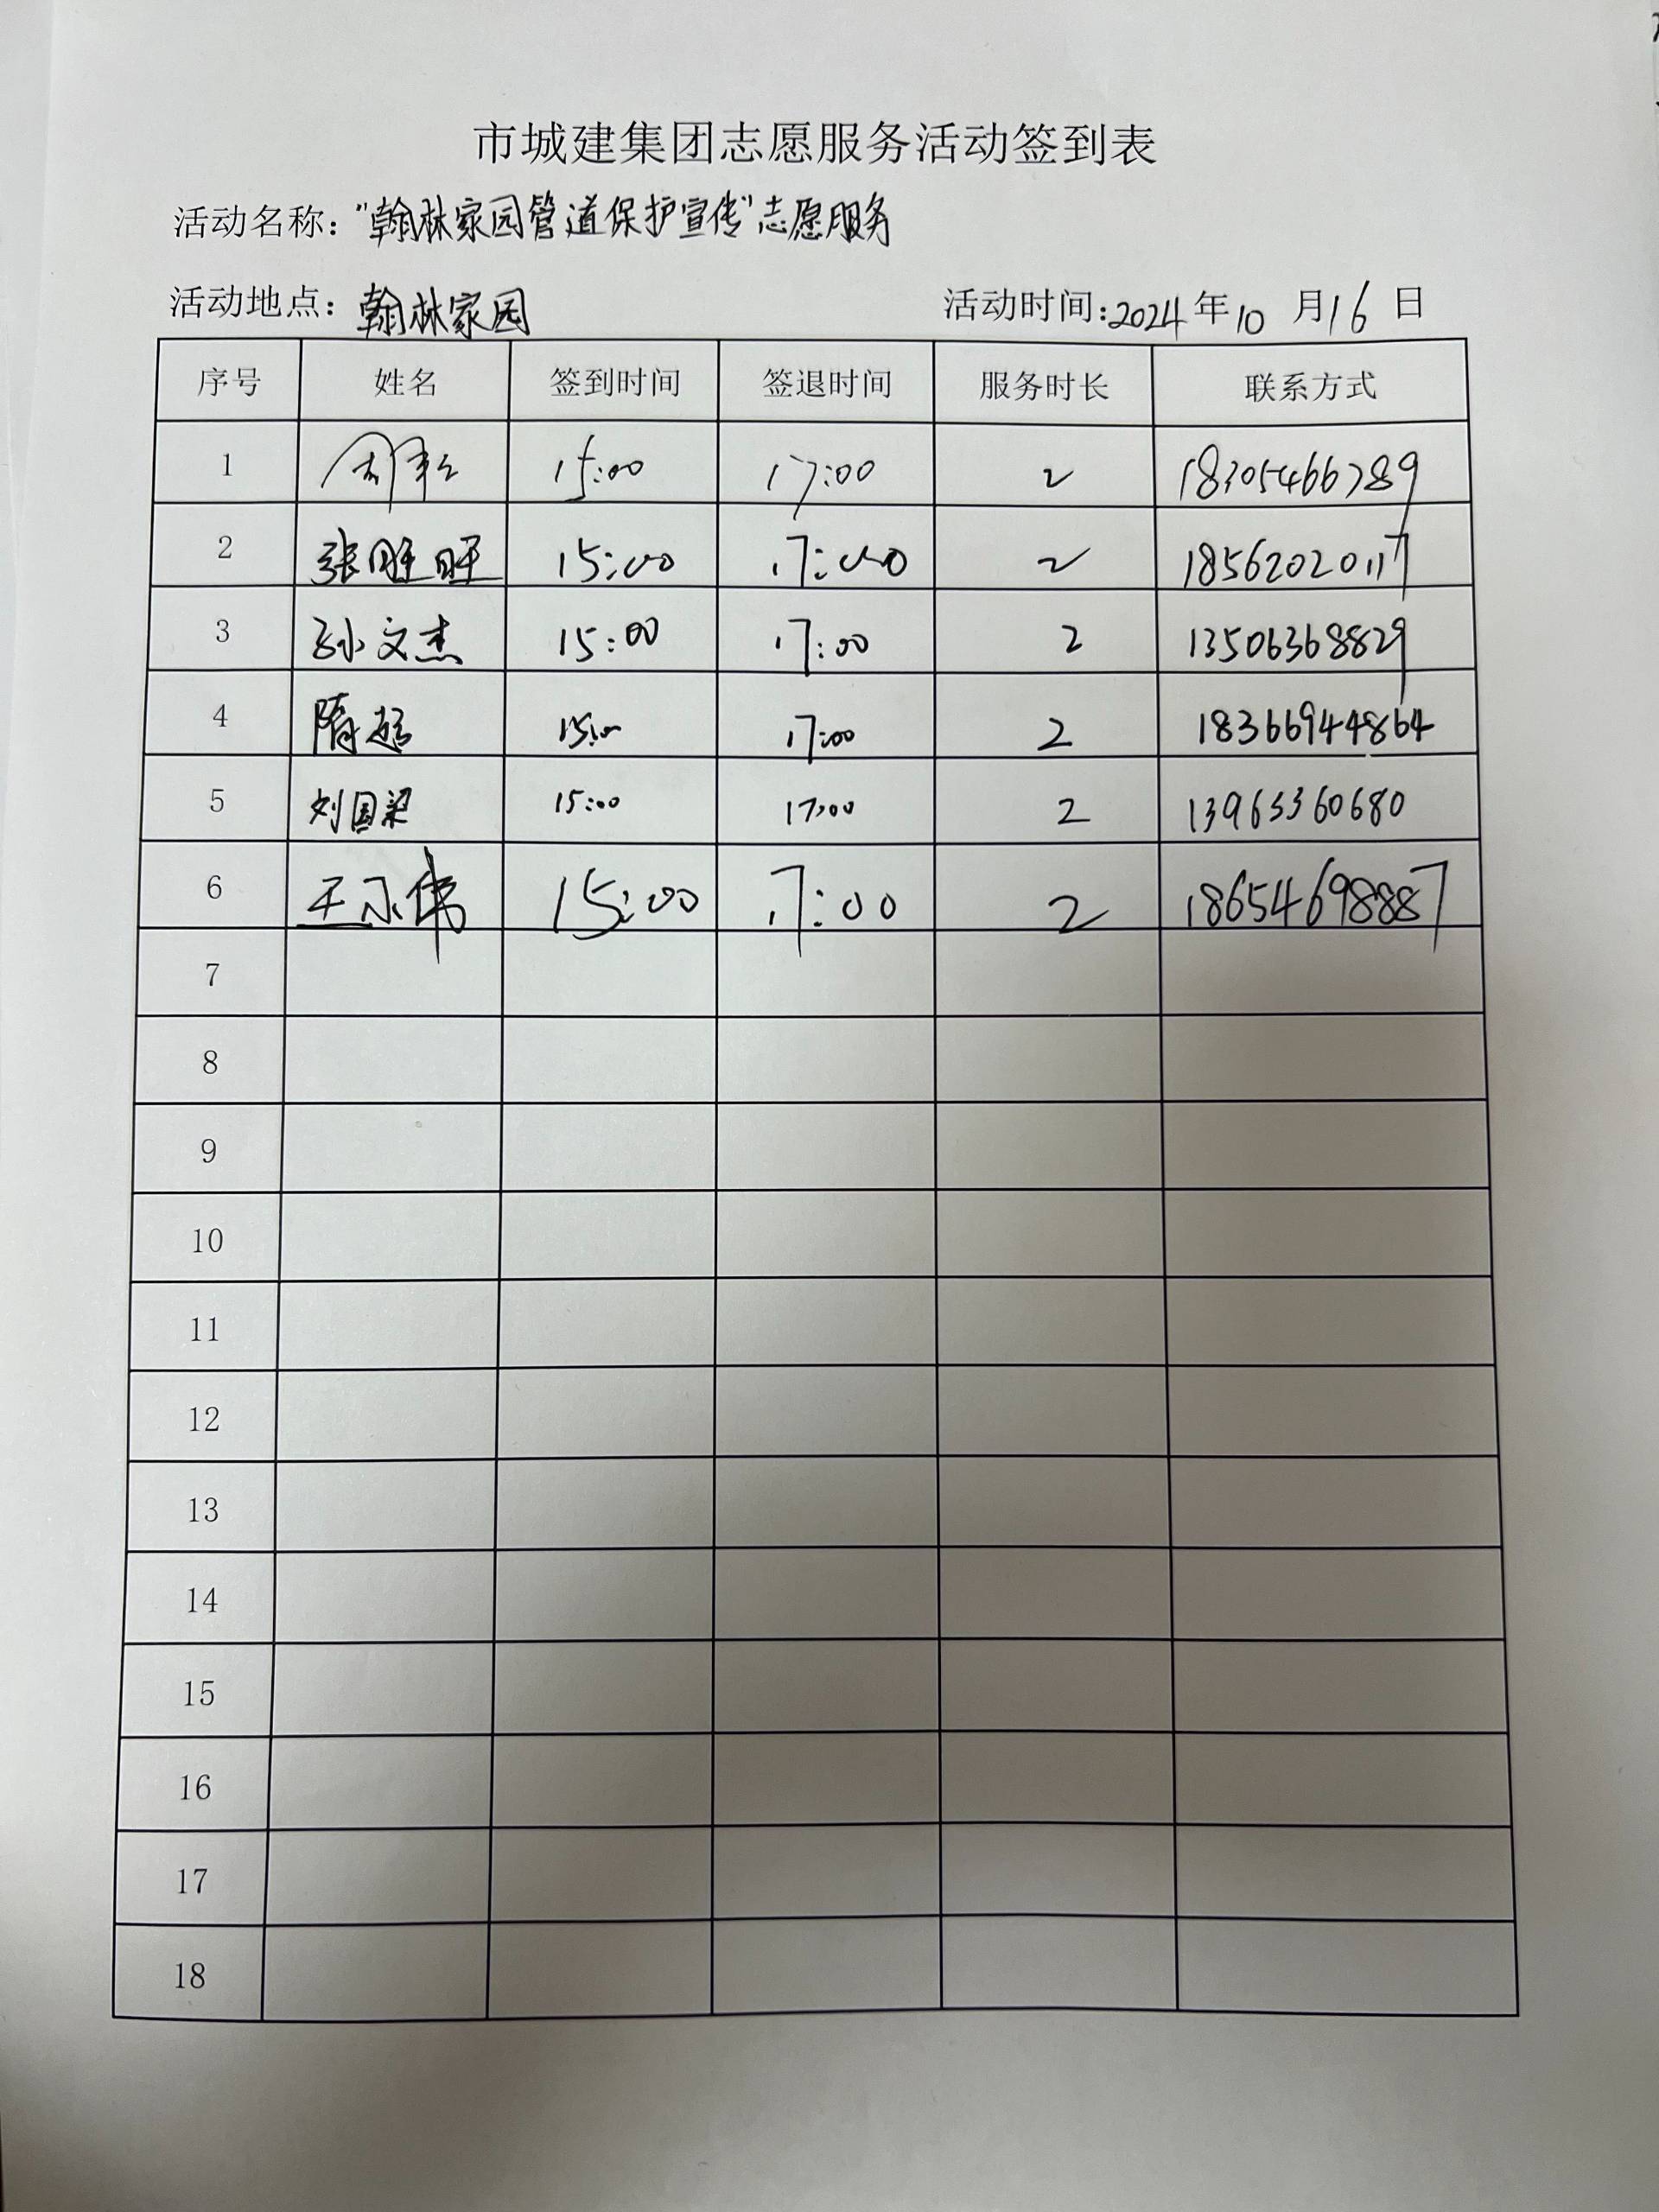 市城建集团志愿服务活动签到表
活动名称：“翰林家园管道保护宣传”志愿服务
活动地点：翰林家园 活动时间：2024年10月16日
序号 姓名 签到时间 签退时间 服务时长 联系方式
1 15:00 17:00 2 18305466789
2 张旺旺 15:00 17:00 2 18562020117
3 孙文杰 15:00 17:00 2 13506368829
4 隋超 15:00 17:00 2 18366944864
5 刘国梁 15:00 17:00 2 13963360680
6 15:00 17:00 2 18654698887
7
8
9
10
11
12
13
14
15
16
17
18